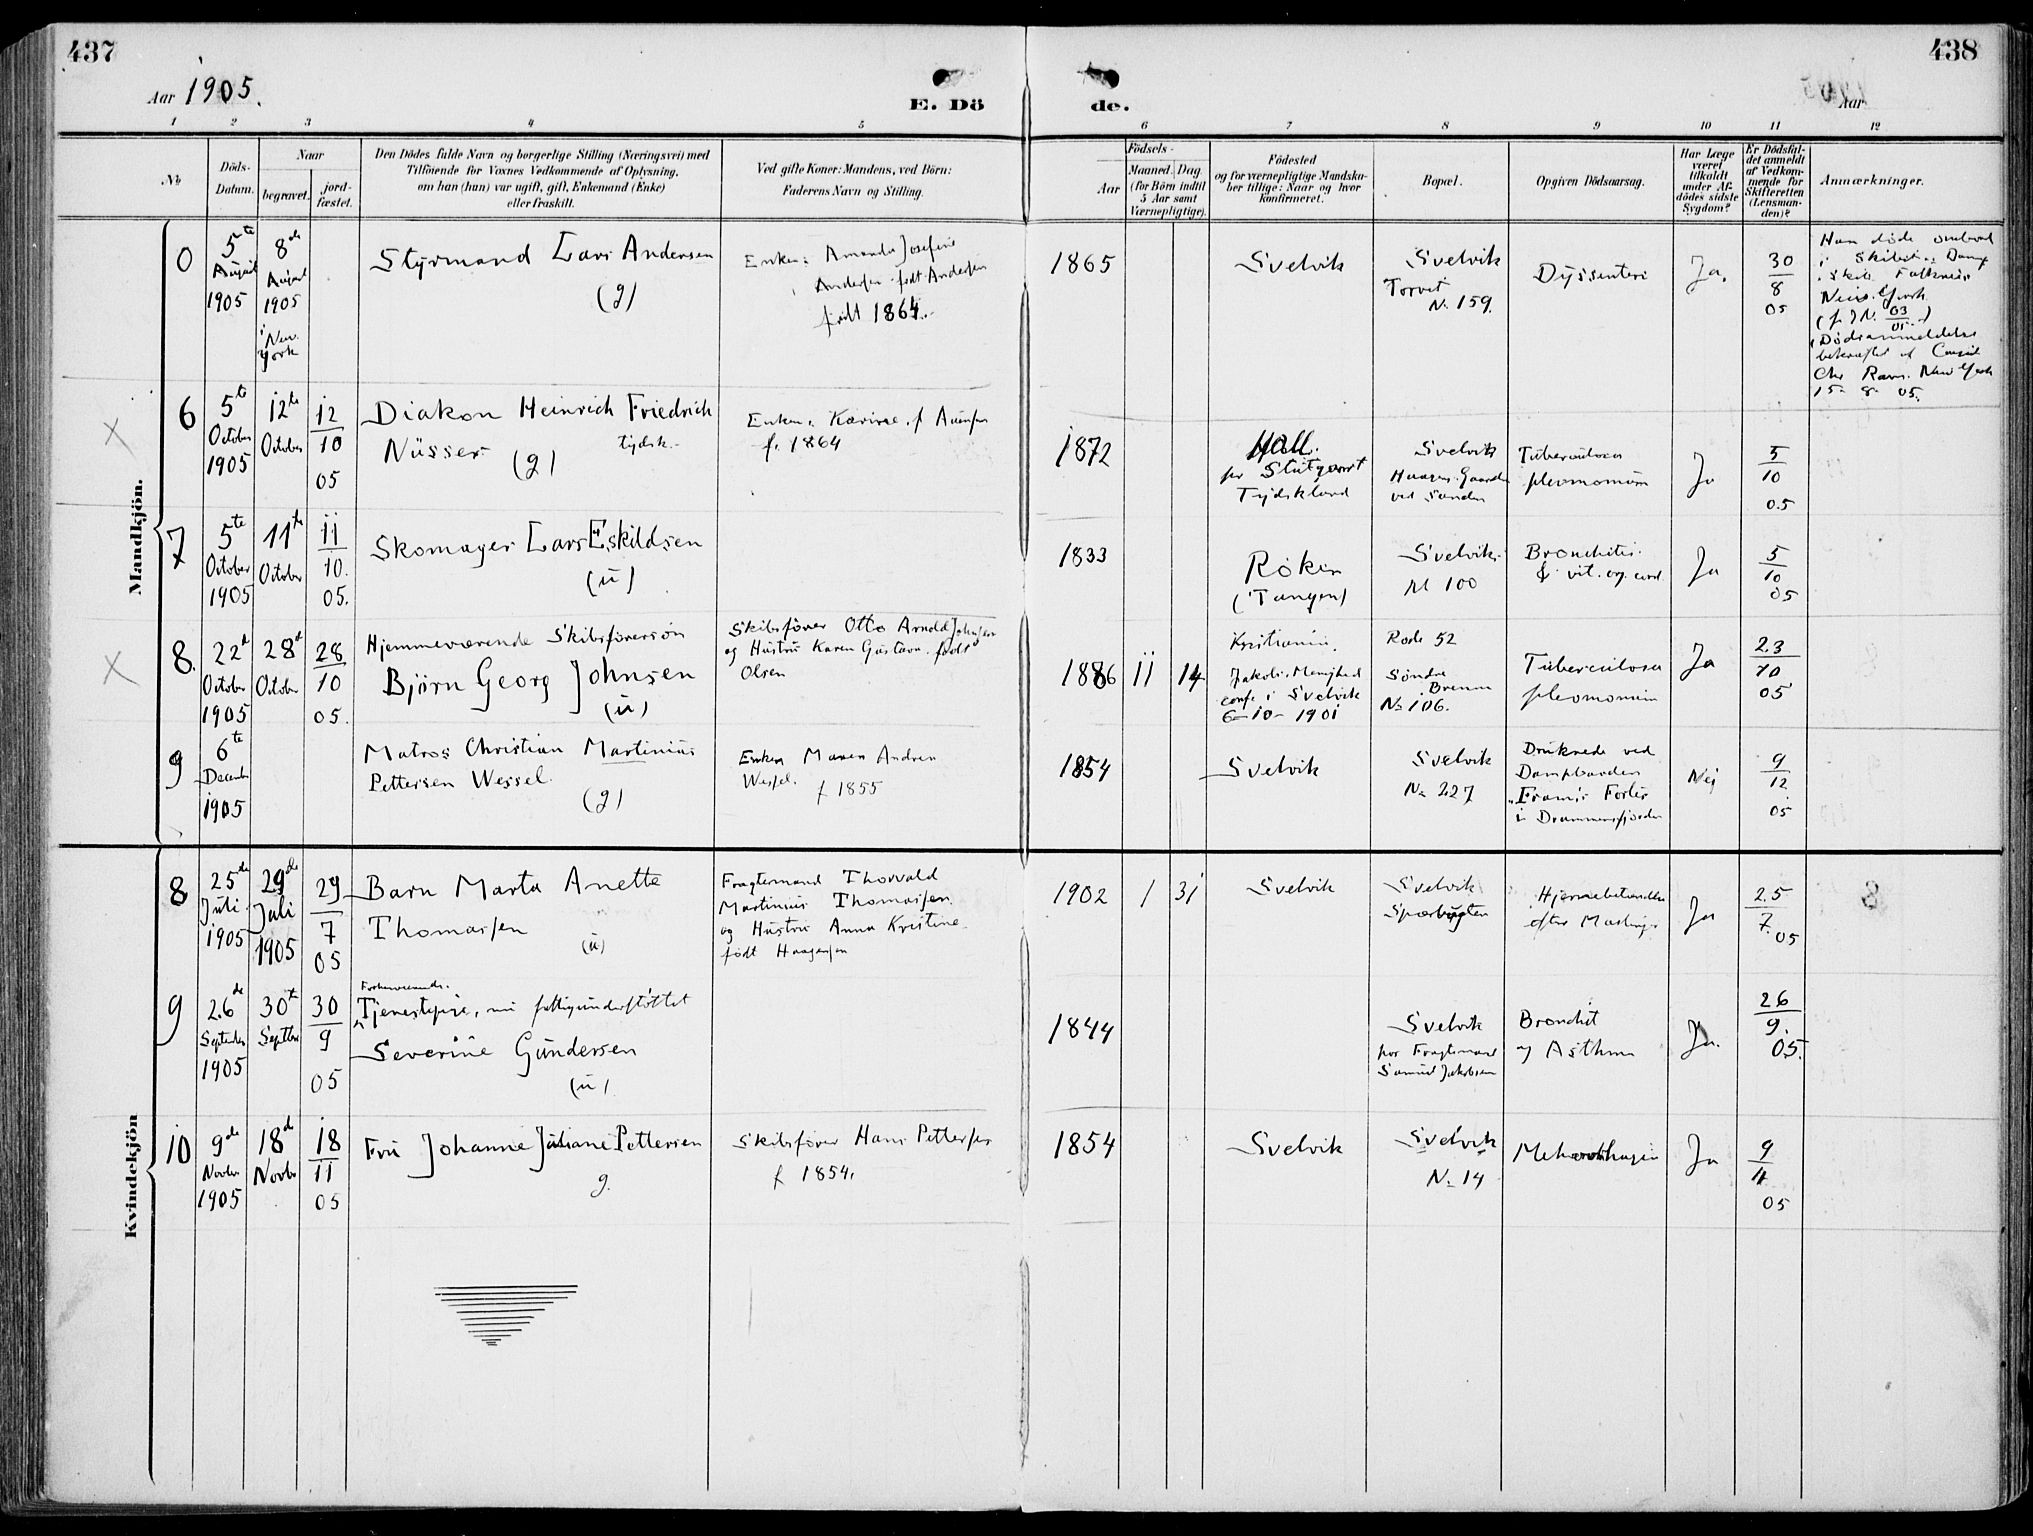 437
438
Aar 1905.
E. Dö
de.
Aar
1 2 3 4 5 6 7 8 9 10 11 12
No
Döds-
Datum.
Naar
begravet.
jord-
fæstet.
Den Dödes fulde Navn og borgerlige Stilling (Næringsvei) med
Tilföiende for Voxnes Vedkommende af Oplysning,
om han (hun) var ugift, gift, Enkemand (Enke)
eller fraskilt.
Ved gifte Koner: Mandens, ved Börn:
Faderens Navn og Stilling.
Födsels-
Aar
Maaned. Dag
(for Börn indtil
5 Aar samt
Værnepligtige).
Födested
og for værnepligtige Mandska-
ber tillige: Naar og hvor
konfirmeret.
Bopæl.
Opgiven Dödsaarsag.
Har Læge
været
tilkaldt
under Af-
dödes sidste
Sygdom?
Er Dödsfal-
det anmeldt
af Vedkom-
mende for
Skifteretten
(Lensman-
den)?
Anmærkninger.
Mandkjön.
0
5te
August
1905
8de
August
1905
i New
York
Styrmand Lars Andersen
(g)
Enke: Amanda Josefine
Andersen født Andersen
født 1864.
1865
Svelvik
Svelvik
Torvet
N. 159.
Dyssenteri
Ja.
30
8
05
Han døde ombord
i Skibet
New York
05
Dødsanmeldelse
bekræftet af Consul
Chr Ravn. New York
15-8-05.
6
5te
October
1905
12te
October
12
10
05
Diakon Heinrich Friedrich
Nüsser (g) tydsk.
f. 1864
1872
Hall.
pr Stutgaart
Tydskland
Svelvik
ved Sanden
Tuberculosa
pleumonum
Ja
5
10
05
7
5te
October
1905
11te
October
11
10.
05.
Skomager Lars Eskildsen
(u)
1833
Röken
(Tangen)
Svelvik.
N 100
Bronchitis.
& vit. org. cord.
Ja
5
10
05
8.
22d
October
1905
28d
October
28
10
05.
Hjemmeværende Skibsførersøn
Björn Georg Johnsen
(u)
Skibsfører Otto Arnold Johnsen
og Hustru Karen Gustava født
Olsen
1886 11 14
Kristiania.
Jakobs. Menighed
conf. i Svelvik
6-10-1901
Rode 52
Søndre
Brenna
No 106.
Tuberculosa
pleumonum
Ja
23
10
05
9
6te
December
1905
Matros Christian Martinius
Pettersen Wessel.
(g)
Enken Maren Andrea
Wessel.
f 1855
1854
Svelvik
Svelvik
No 227
Druknede ved
Dampbaaden
i Drammensfjorden
Nei
9
12
05
Kvindekjön
8
25de
Juli
1905
29de
Juli
1905
29
7
05
Barn Marta Anette
Thomassen
(u)
Fragtemand Thorvald
Martinius Thomassen
og Hustru Anna Kristine
født Haagensen
1902 1 31
Svelvik
Svelvik
Hjernebetændelse
efter Mæslinger
Ja
25
7.
05
9
26de
September
1905
30te
Septbr
30
9
05
Forhenværende
Tjenestepige, nu fattigunderstøttet
Severine Gundersen
(u)
1844
Svelvik
hos Fragtemand
Samuel Jakobsen
Bronchit
og Asthma
Ja.
26
9.
05.
10
9de
Novbr
1905
18d
Novbr
18
11
05
Fru Johanne Juliane Pettersen
g.
Skibsfører Hans Pettersen
f 1854.
1854
Svelvik
Svelvik
No 14
Ja
9
11
05